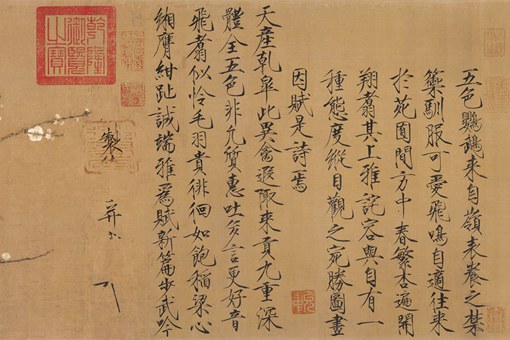 五色鸚鵡來自嶺表養之禁
籞馴服可愛飛鳴自適往來
於苑囿間方中春繁杏遍開
翔翥其上雅詫容與自有一
種態度縱目觀之宛勝圖畫
因賦是詩焉
天產乾皐此異禽遐陬來貢九重深
體全五色非凡質惠吐多言更好音
飛翥似憐毛羽貴徘徊如飽稻粱心
緗膺紺趾誠端雅為賦新篇步武吟
乾隆御覽之寶
製
并